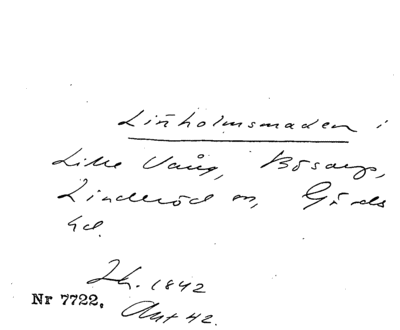 Linholmsmaden i
Lille Vång, Bösarp,
Linderöd sn, Gärds
hd.
Lh. 1842
Akt 42.
Nr 7722.